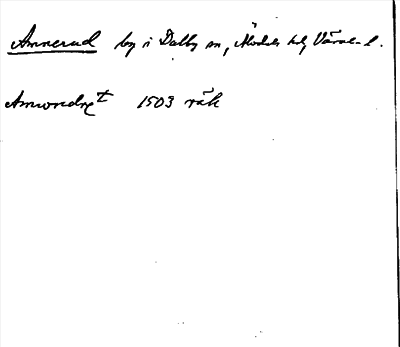 Amnerud by i Dalby sn, Älvdals hd, Värml.
Amwndrqt 1503 räk